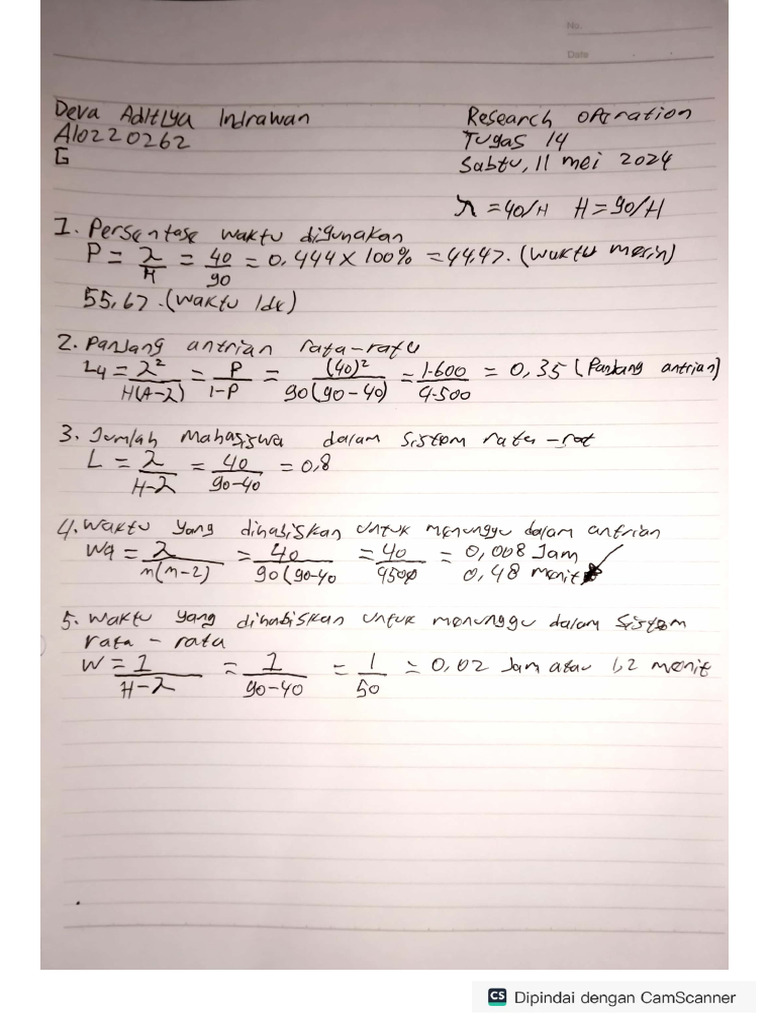 No.
Date
Deva Aditiya Indrawan
A10220262
G
Research Operation
Tugas 14
Sabtu, 11 mei 2024
λ = 40/H   H = 90/H
1. Persentase waktu digunakan
P = λ/H = 40/90 = 0,444 x 100% = 44,47. (waktu mesin)
55,67. (waktu Idle)
2. Panjang antrian rata-rata
Lq = λ²/H(H-λ) = P/1-P = (40)²/90(90-40) = 1.600/4.500 = 0,35 (Panjang antrian)
3. Jumlah Mahasiswa dalam sistem rata-rat
L = λ/H-λ = 40/90-40 = 0,8
4. waktu yang dihabiskan untuk menunggu dalam antrian
Wq = λ/n(n-λ) = 40/90(90-40 = 40/4500 = 0,008 Jam
0,48 menit
5. waktu yang dihabiskan untuk menunggu dalam sistem
rata - rata
W = 1/H-λ = 1/90-40 = 1/50 = 0,02 Jam atau 1,2 menit
CS Dipindai dengan CamScanner